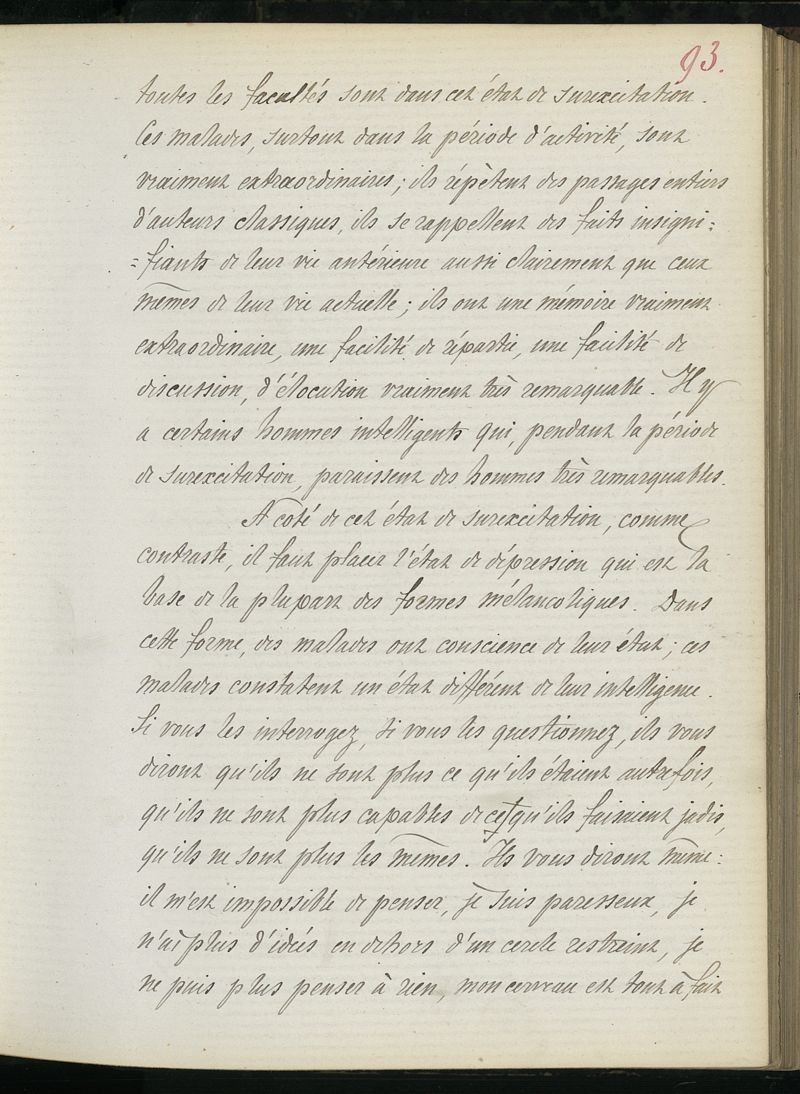 93.
toutes les facultés sont dans cet état de surexcitation.
Ces malades, surtout dans la période d'activité, sont
vraiment extraordinaires; ils répètent des passages entiers
d'auteurs classiques, ils se rappellent des faits insigni=
=fiants de leur vie antérieure aussi clairement que ceux
mêmes de leur vie actuelle; ils ont une mémoire vraiment
extraordinaire, une facilité de répartie, une facilité de
discussion, d'élocution vraiment très remarquable. Il y
a certains hommes intelligents qui, pendant la période
de surexcitation, paraissent des hommes très remarquables.
A coté de cet état de surexcitation, comme
contraste, il faut placer l'état de dépression qui est la
base de la plupart des formes mélancoliques. Dans
cette forme, des malades ont conscience de leur état; ces
malades constatent un état différent de leur intelligence.
Si vous les interrogez, si vous les questionnez, ils vous
diront qu'ils ne sont plus ce qu'ils étaient autrefois,
qu'ils ne sont plus capables de ce qu'ils faisaient jadis,
qu'ils ne sont plus les mêmes. Ils vous diront même:
il m'est impossible de penser, je suis paresseux, je
n'ai plus d'idées en dehors d'un cercle restraint, je
ne puis plus penser à rien, mon cerveau est tout à fait